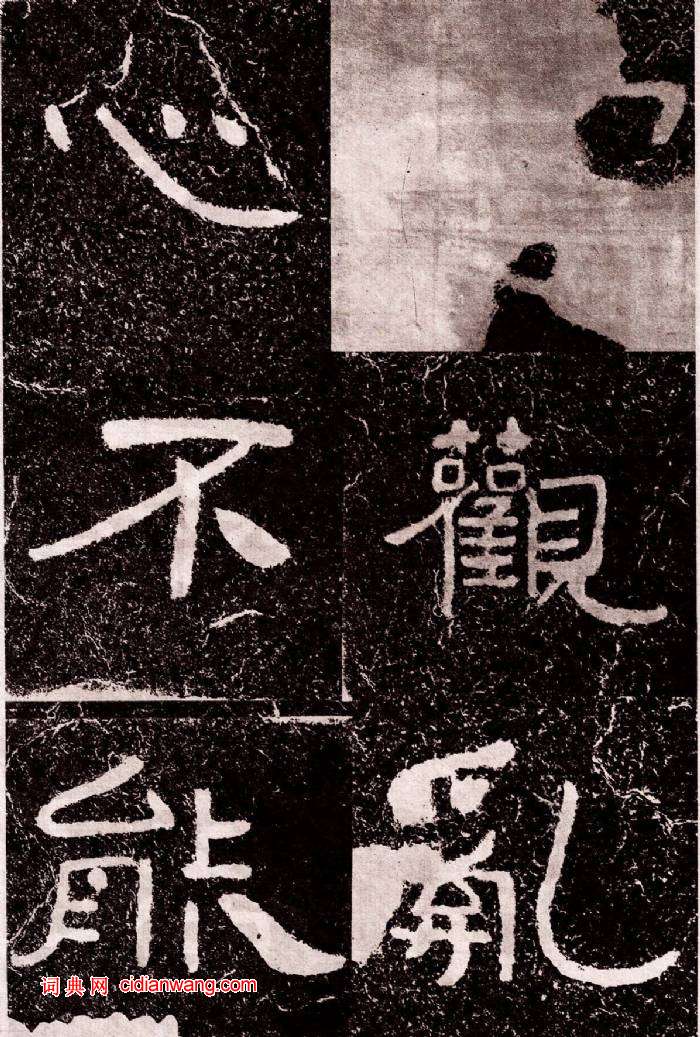 觀亂
心不能
词典网 cidianwang.com